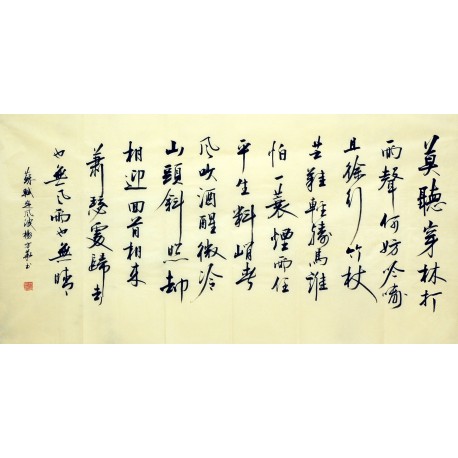 莫聽穿林打
雨聲何妨吟嘯
且徐行竹杖
芒鞋輕勝馬誰
怕一蓑煙雨任
平生料峭春
风吹酒醒微冷
山頭斜照却
相迎回首相来
蕭瑟處歸去
也無风雨也無晴
蘇軾定风波楊